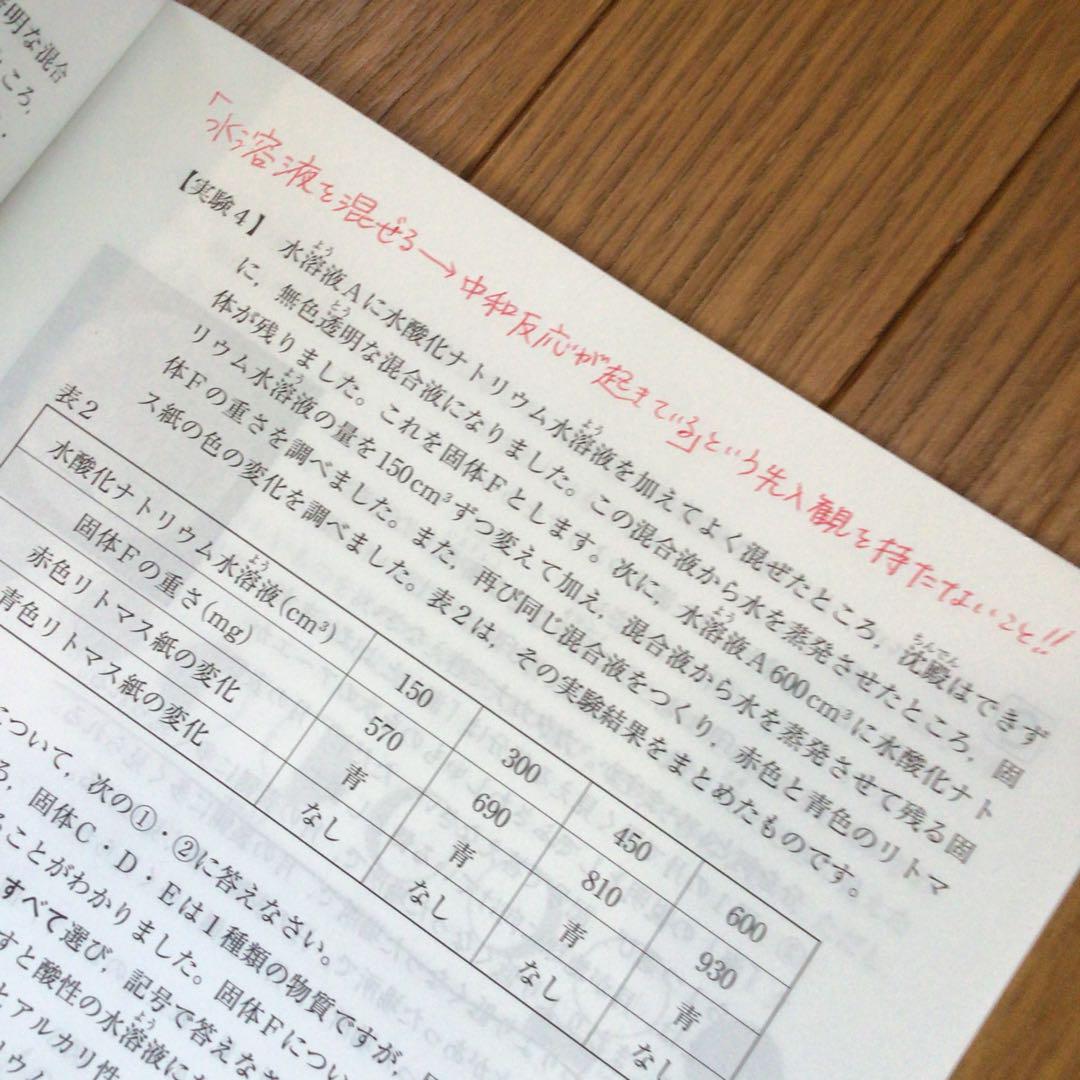 明な混合
ころ,
「水溶液を混ぜる→中和反応が起きている」という先入観を持たないこと!!
【実験4】 水溶液Aに水酸化ナトリウム水溶液を加えてよく混ぜたところ,沈殿はできず
に,無色透明な混合液になりました。この混合液から水を蒸発させたところ,固
体が残りました。これを固体Fとします。次に,水溶液A600cm³に水酸化ナト
リウム水溶液の量を150cm³ずつ変えて加え,混合液から水を蒸発させて残る固
体Fの重さを調べました。また,再び同じ混合液をつくり,赤色と青色のリトマ
ス紙の色の変化を調べました。表2は,その実験結果をまとめたものです。
表2
水酸化ナトリウム水溶液(cm³) 150 300 450 600
固体Fの重さ(mg) 570 690 810 930
赤色リトマス紙の変化 青 青 青 青
青色リトマス紙の変化 なし なし なし なし
について,次の①・②に答えなさい。
固体C・D・Eは1種類の物質ですが,
ることがわかりました。固体Fについ
すべて選び,記号で答えなさ
すと酸性の水溶液に
とアルカリ性